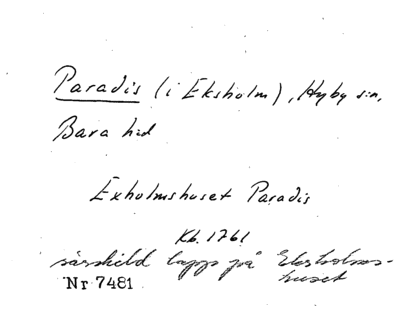 Paradis (i Eksholm), Hyby s:n,
Bara hd
Exholmshuset Paradis
Kb. 1761
särskild lapp på Eksholms-
huset
Nr 7481